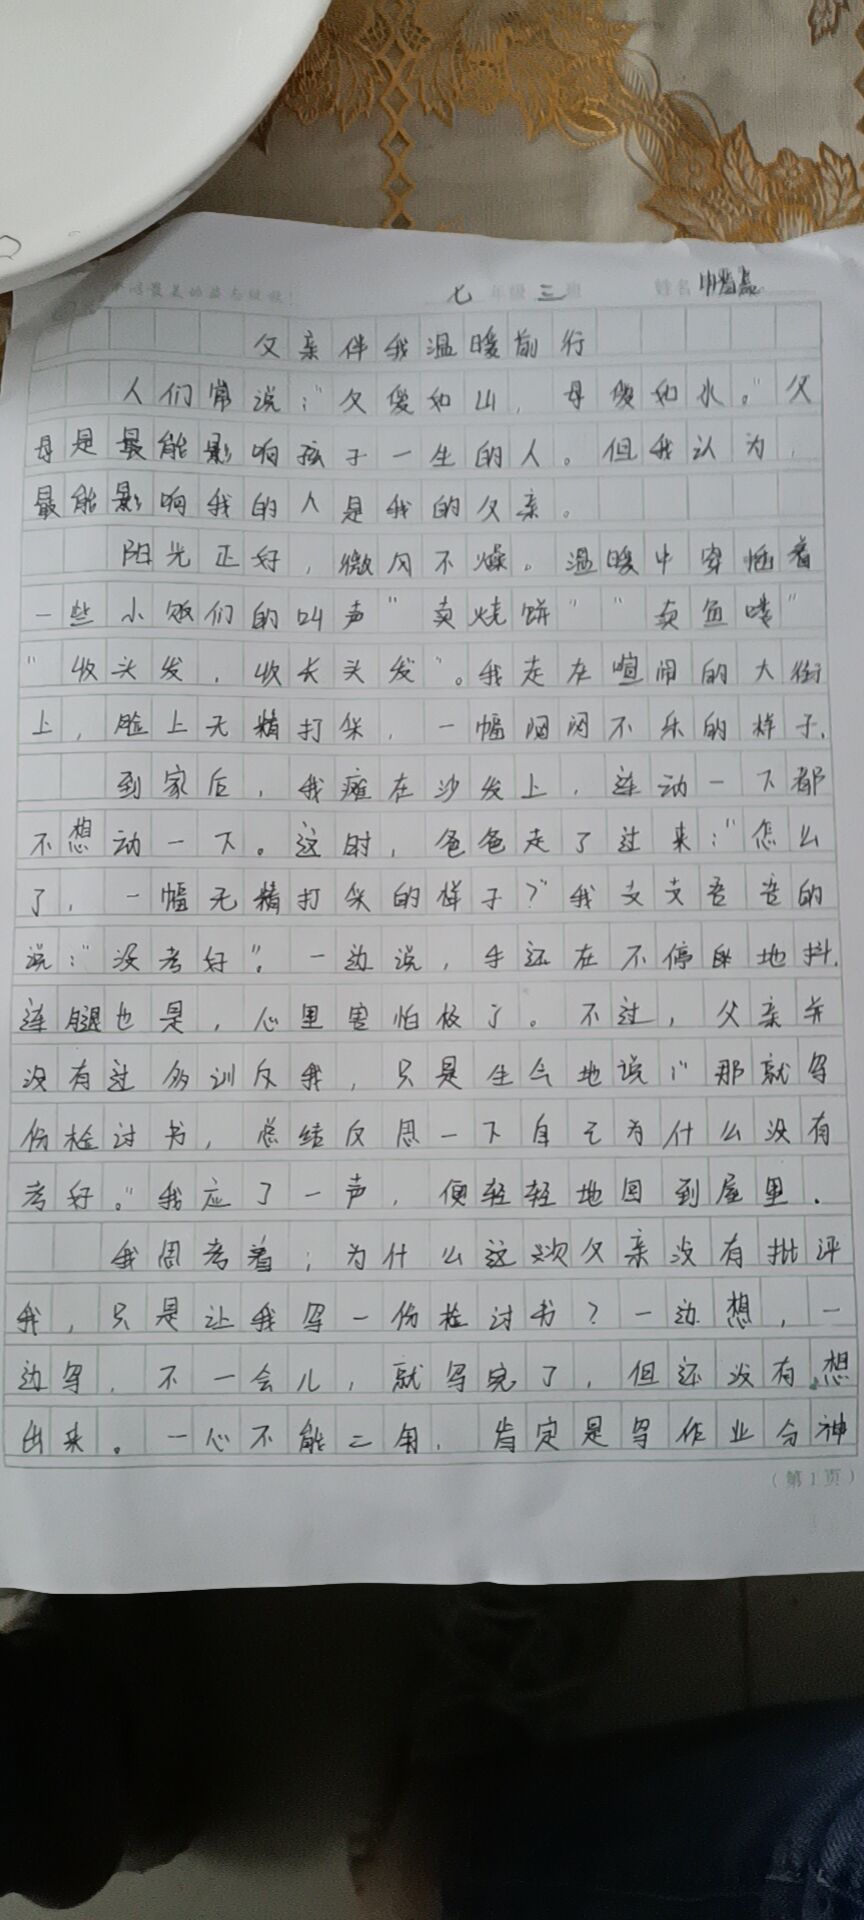 七 年级 三 班 姓名
父亲伴我温暖前行
人们常说:"父爱如山,母爱如水。"父
母是最能影响孩子一生的人。但我认为,
最能影响我的人是我的父亲。
阳光正好,微风不燥。温暖中穿插着
一些小贩们的叫声"卖烧饼""卖鱼喽"
"收头发,收长头发"。我走在喧闹的大街
上,脸上无精打采,一幅闷闷不乐的样子.
到家后,我瘫在沙发上,连动一下都
不想动一下。这时,爸爸走了过来:"怎么
了,一幅无精打采的样子?"我支支吾吾的
说:"没考好"。一边说,手还在不停地抖.
连腿也是,心里害怕极了。不过,父亲并
没有过多训反我,只是生气地说:"那就写
份检讨书,总结反思一下自己为什么没有
考好。"我应了一声,便轻轻地回到屋里.
我思考着;为什么这次父亲没有批评
我,只是让我写一份检讨书?一边想,一
边写,不一会儿,就写完了,但还没有想
出来。一心不能二用,肯定是写作业分神
(第1页)